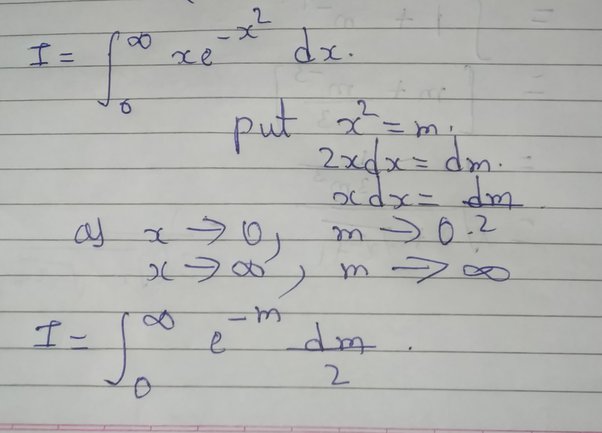 I = ∫₀^∞ xe^{-x²} dx.
put x² = m.
2xdx = dm.
xdx = dm/2
as x → 0, m → 0.
x → ∞, m → ∞
I = ∫₀^∞ e^{-m} dm/2 .